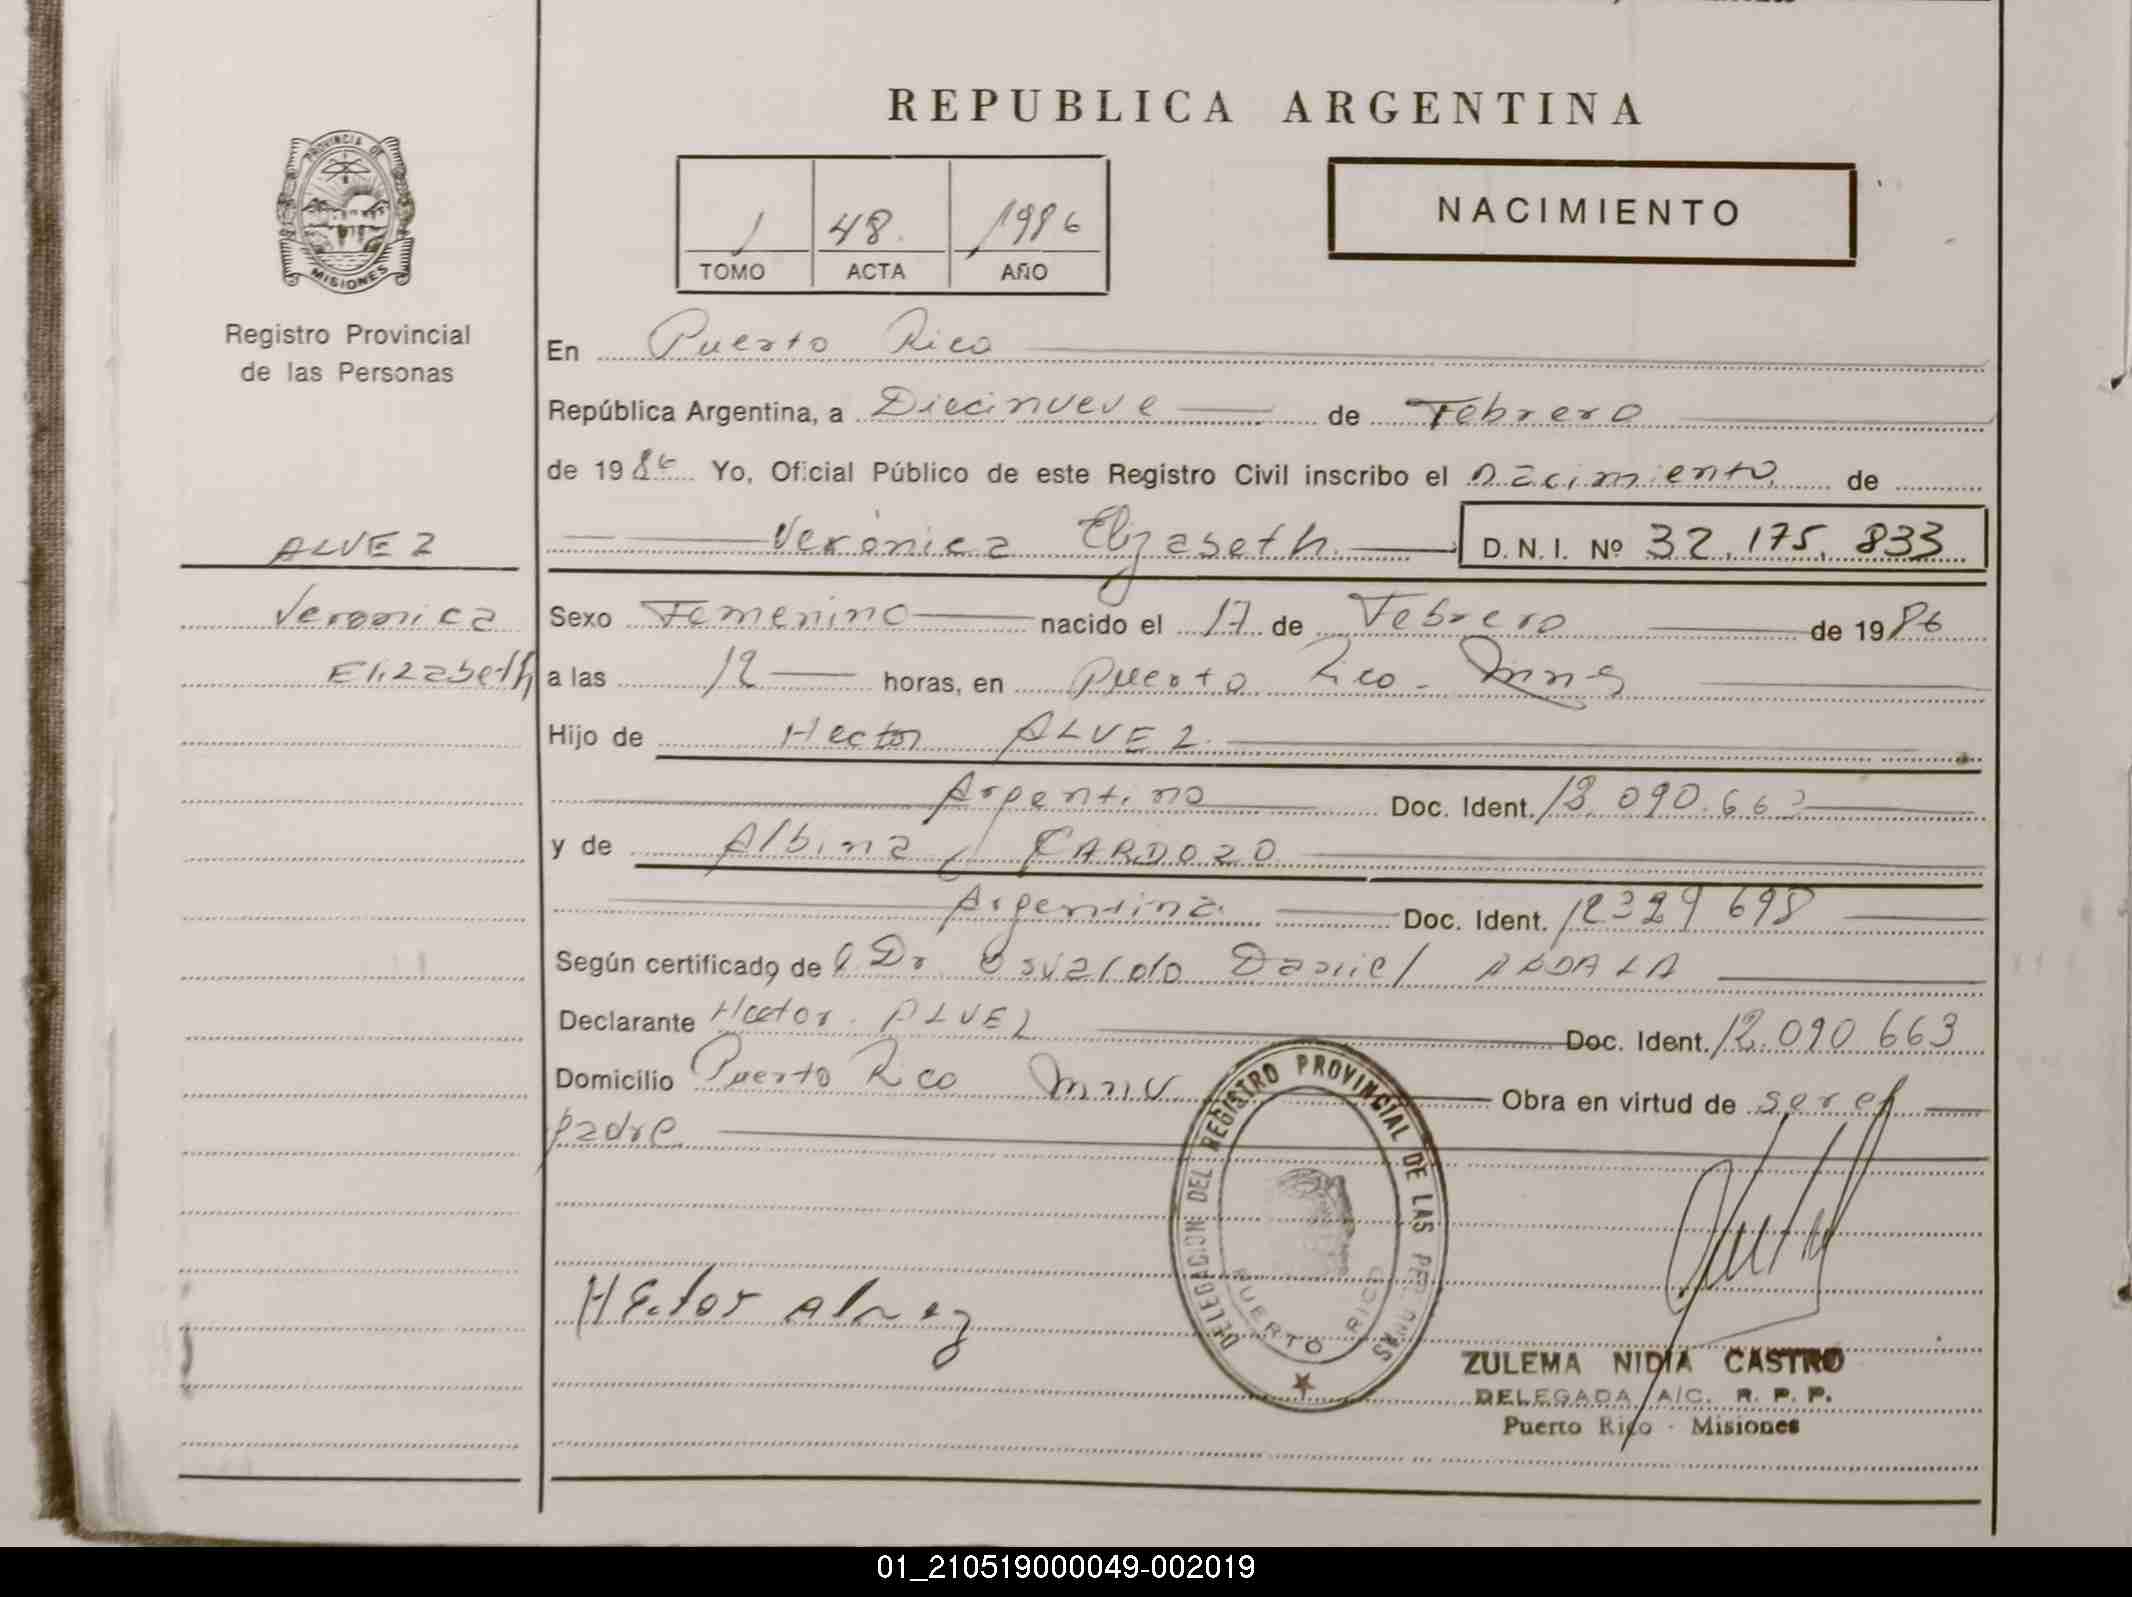 REPUBLICA ARGENTINA
PROVINCIA DE
MISIONES
Registro Provincial
de las Personas
1 48 1986
TOMO ACTA AÑO
NACIMIENTO
En Puerto Rico
República Argentina, a Diecinueve de Febrero
de 1986 Yo, Oficial Público de este Registro Civil inscribo el nacimiento de
ALVEZ
Verónica Elizabeth D. N. I. Nº 32.175.833
Veronica
Elizabeth
Sexo Femenino nacido el 17 de Febrero de 1986
a las 12 horas, en Puerto Rico - Mnes
Hijo de Hector ALVEZ
Argentino Doc. Ident.
y de Albina CARDOZO
Argentina Doc. Ident. 12329698
Según certificado de Dr Osvaldo Daniel ABDALA
Declarante Hector ALVEZ Doc. Ident. 12.090.663
Domicilio Puerto Rico Obra en virtud de ser el
padre
DELEGACION DEL REGISTRO PROVINCIAL DE LAS PERSONAS
PUERTO RICO
Hector alvez
ZULEMA NIDIA CASTRO
DELEGADA A/C. R. P. P.
Puerto Rico - Misiones
01_210519000049-002019